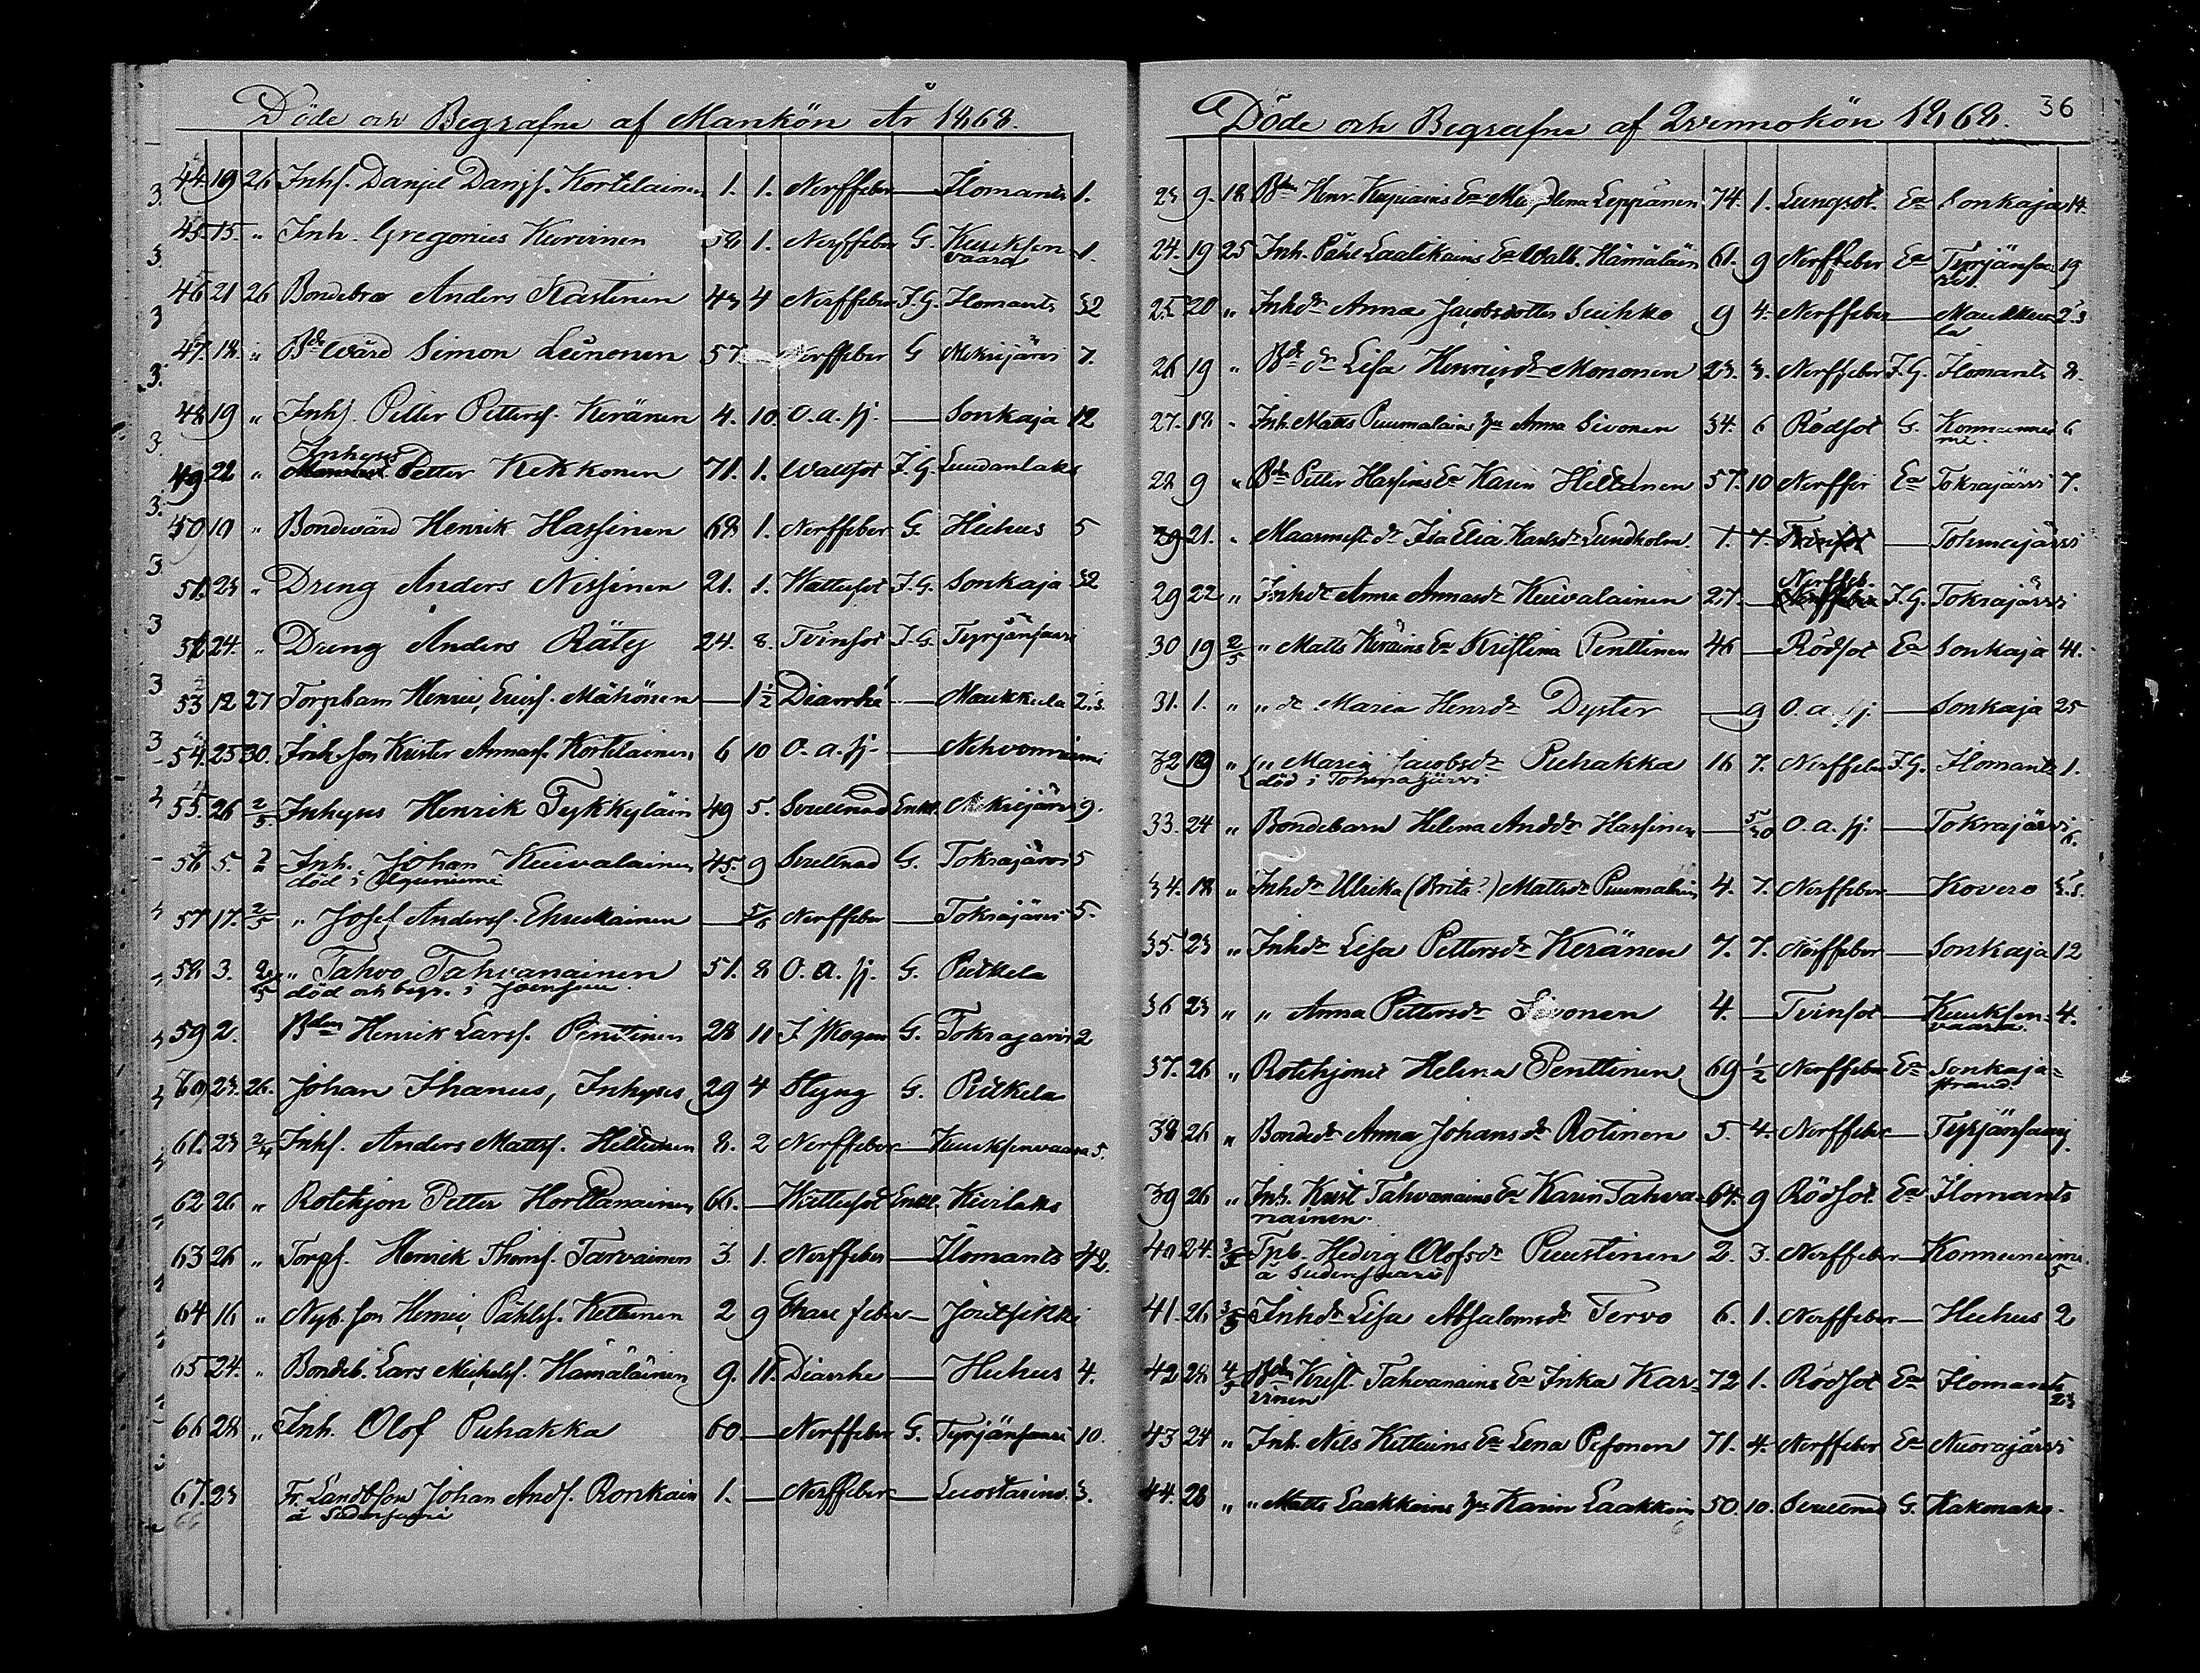 Döde och Begrafne af Mankön År 1868.
44. 19 26 Inhs. Danjel Danjs. Kortelainen 1. 1. Nerffeber — Ilomants 1.
45. 15. " Inh. Gregorius Kurvinen 58 1. Nerffeber G. Kuuksen-
vaara 1.
46 21 26 Bondebror Anders Kastinen 43 4 Nerffeber I.G. Ilomants 32
47. 18. " Bdewärd Simon Leinonen 57. — Nerffeber G Mekrijärvi 7.
48 19 " Inhs. Petter Petters. Keränen 4. 10. O. a. sj. — Sonkaja 12
Inhyses
49 22 " Petter Kekkonen 71. 1. Wattsot I.G. Luudanlaks
50 10 " Bondewärd Henrik Hassinen 68 1. Nerffeber G. Huhus 5
51. 23 " Dreng Anders Nissinen 21. 1. Wattusot I.G. Sonkaja 32
52 24. " Dreng Anders Räty 24. 8. Tvinsot I.G. Tyrjänsaari
53 12 27 Torpbarn Henric Erics. Mähönen — 1½ Diarrhé — Maukkula 2.
54. 25 30. Inh. son Krister Annas. Kortelainen 6 10 O. a. sj. — Nehvonniemi
55. 26 2/5. Inhyses Henrik Tykkyläin 49 5. Svullnad Enkl. Mekrijärvi 9.
56 5. 2 Inh. Johan Kuivalainen 45. 9 Svullnad G. Tokrajärvi 5
död i
57 17. 2/5 " Josef Anders. Ehrukainen — 5/6 Nerffeber — Tokrajärvi 5.
58. 3. " Tahvo Tahvanainen 51. 8 O. a. sj. G. Putkela
död och begr. i Joensuu.
59 2. Bden Henrik Larss. Penttinen 28 11 I skogen G. Tokrajärvi 2
60 23. 26. Johan Ihanus, Inhyses 29 4 Styng G. Putkela
61. 23 2/4 Inhs. Anders Matts. Hiltunen 8. 2 Nerffeber — Kuuksenvaara 5.
62 26 " Rotehjon Petter Horttanainen 66. — Wattusot Enkl. Kuilaks
63 26 " Torps. Henrik Thoms. Tarvainen 3. 1. Nerffeber — Ilomants 42.
64 16 " Nyb. son Henric Påhls. Kettunen 2 9 feber — Jouhtikki
65 24. " Bondeb. Lars Michels. Hämäläinen 9. 11. Diarrhe — Huhus 4.
66 28 " Inh. Olof Puhakka 60. — Nerffeber G. Tyrjänsaari 10.
67. 23 Fr. Landb. son Johan Ands. Ronkain 1. — Nerffeber — Luostarins. 3.
å Sudensaari
36
Döde och Begrafne af Qvinnokön 1868.
23 9. 18 Bden Henr. Kupiains Ea Magdlena Leppänen 74. 1. Lungsot. Ea Sonkaja 14.
24. 19 25 Inh. Påhl Laalikains Ea Walb. Hämäläin 61. 9 Nerffeber Ea Tyrjänsaa-
ri 19
25 20 " Inhdr Anna Jacobsdotter Suihko 9 4. Nerffeber — Maukku-
la
26 19 " Bdedr Lisa Henricsdr Mononen 23. 3. Nerffeber I.G. Ilomants 8.
27. 18 " Inh. Matts Puumalains hu Anna Sivonen 34. 6 Rödsot G. Konnunnie-
mi. 6
28 9 " Bden Petter Hassins Ea Karin Hiltunen 57. 10 Nerffer Ea Tokrajärvi 7.
29 21. " dr Ida Elia Karlsdr Lundholm. 1. 7. Tvinsot — Tohmajärvi
29 22 " Inhdr Anna Annasdr Kuivalainen 27. — Nerffeb. I.G. Tokrajärvi
30 19 2/5 " Matts Keräins Ea Kristina Penttinen 46 — Rödsot Ea Sonkaja 41.
31. 1. " " dr Maria Henrdr Dyster — 9 O. a. sj. — Sonkaja 25
32 19 " " Maria Jacobsdr Puhakka 16 7. Nerffeber I.G. Ilomants 1.
död i Tohmajärvi
33. 24 " Bondebarn Helena Anddr Hassinen — 5/30 O. a. sj. — Tokrajärvi 6.
34. 18 " Inhdr Ulrika (Brita?) Mattsdr Puumalain 4. 7. Nerffeber — Kovero
35. 23 " Inhdr Lisa Pettersdr Keränen 7. 7. Nerffeber — Sonkaja 12
36 23 " " Anna Pettersdr Sivonen 4. — Tvinsot — Kuuksen-
vaara. 4.
37. 26 " Rotehjonet Helena Penttinen 69 ½ Nerffeber Ea Sonkaja-
strand.
38 26 " Bondedr Anna Johansdr Rotinen 5. 4. Nerffeber — Tyrjänsaari
39 26 " Inh. Krist Tahvanains Ea Karin Tahva- 64. 9 Rödsot Ea Ilomants
nainen.
40 24. 3/5 Tpb. Hedvig Olofsdr Puustinen 2. 3. Nerffeber — Konnunniemi.
å Sudensaari 5
41. 26 3/5 Inhdr Lisa Absalomsdr Tervo 6. 1. Nerffeber — Huhus 2
42 28 4/5 Bden Krist. Tahvanains Ea Inka Kar- 72 1. Rödsot Ea Ilomants
vinen 23
43 24 " Inh. Nils Kettuins Ea Lena Pesonen 71. 4. Nerffeber Ea Nuorajärvi
44. 28 " " Matts Laakkains hu Karin Laakkain 50. 10. Svullnad G. Kakonaho.